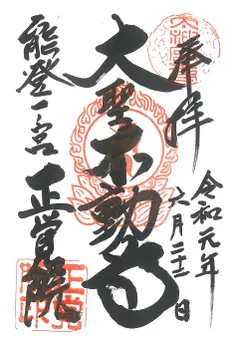 奉拝
令和元年
六月二十二日
大聖不動尊
能登一宮
正覚院